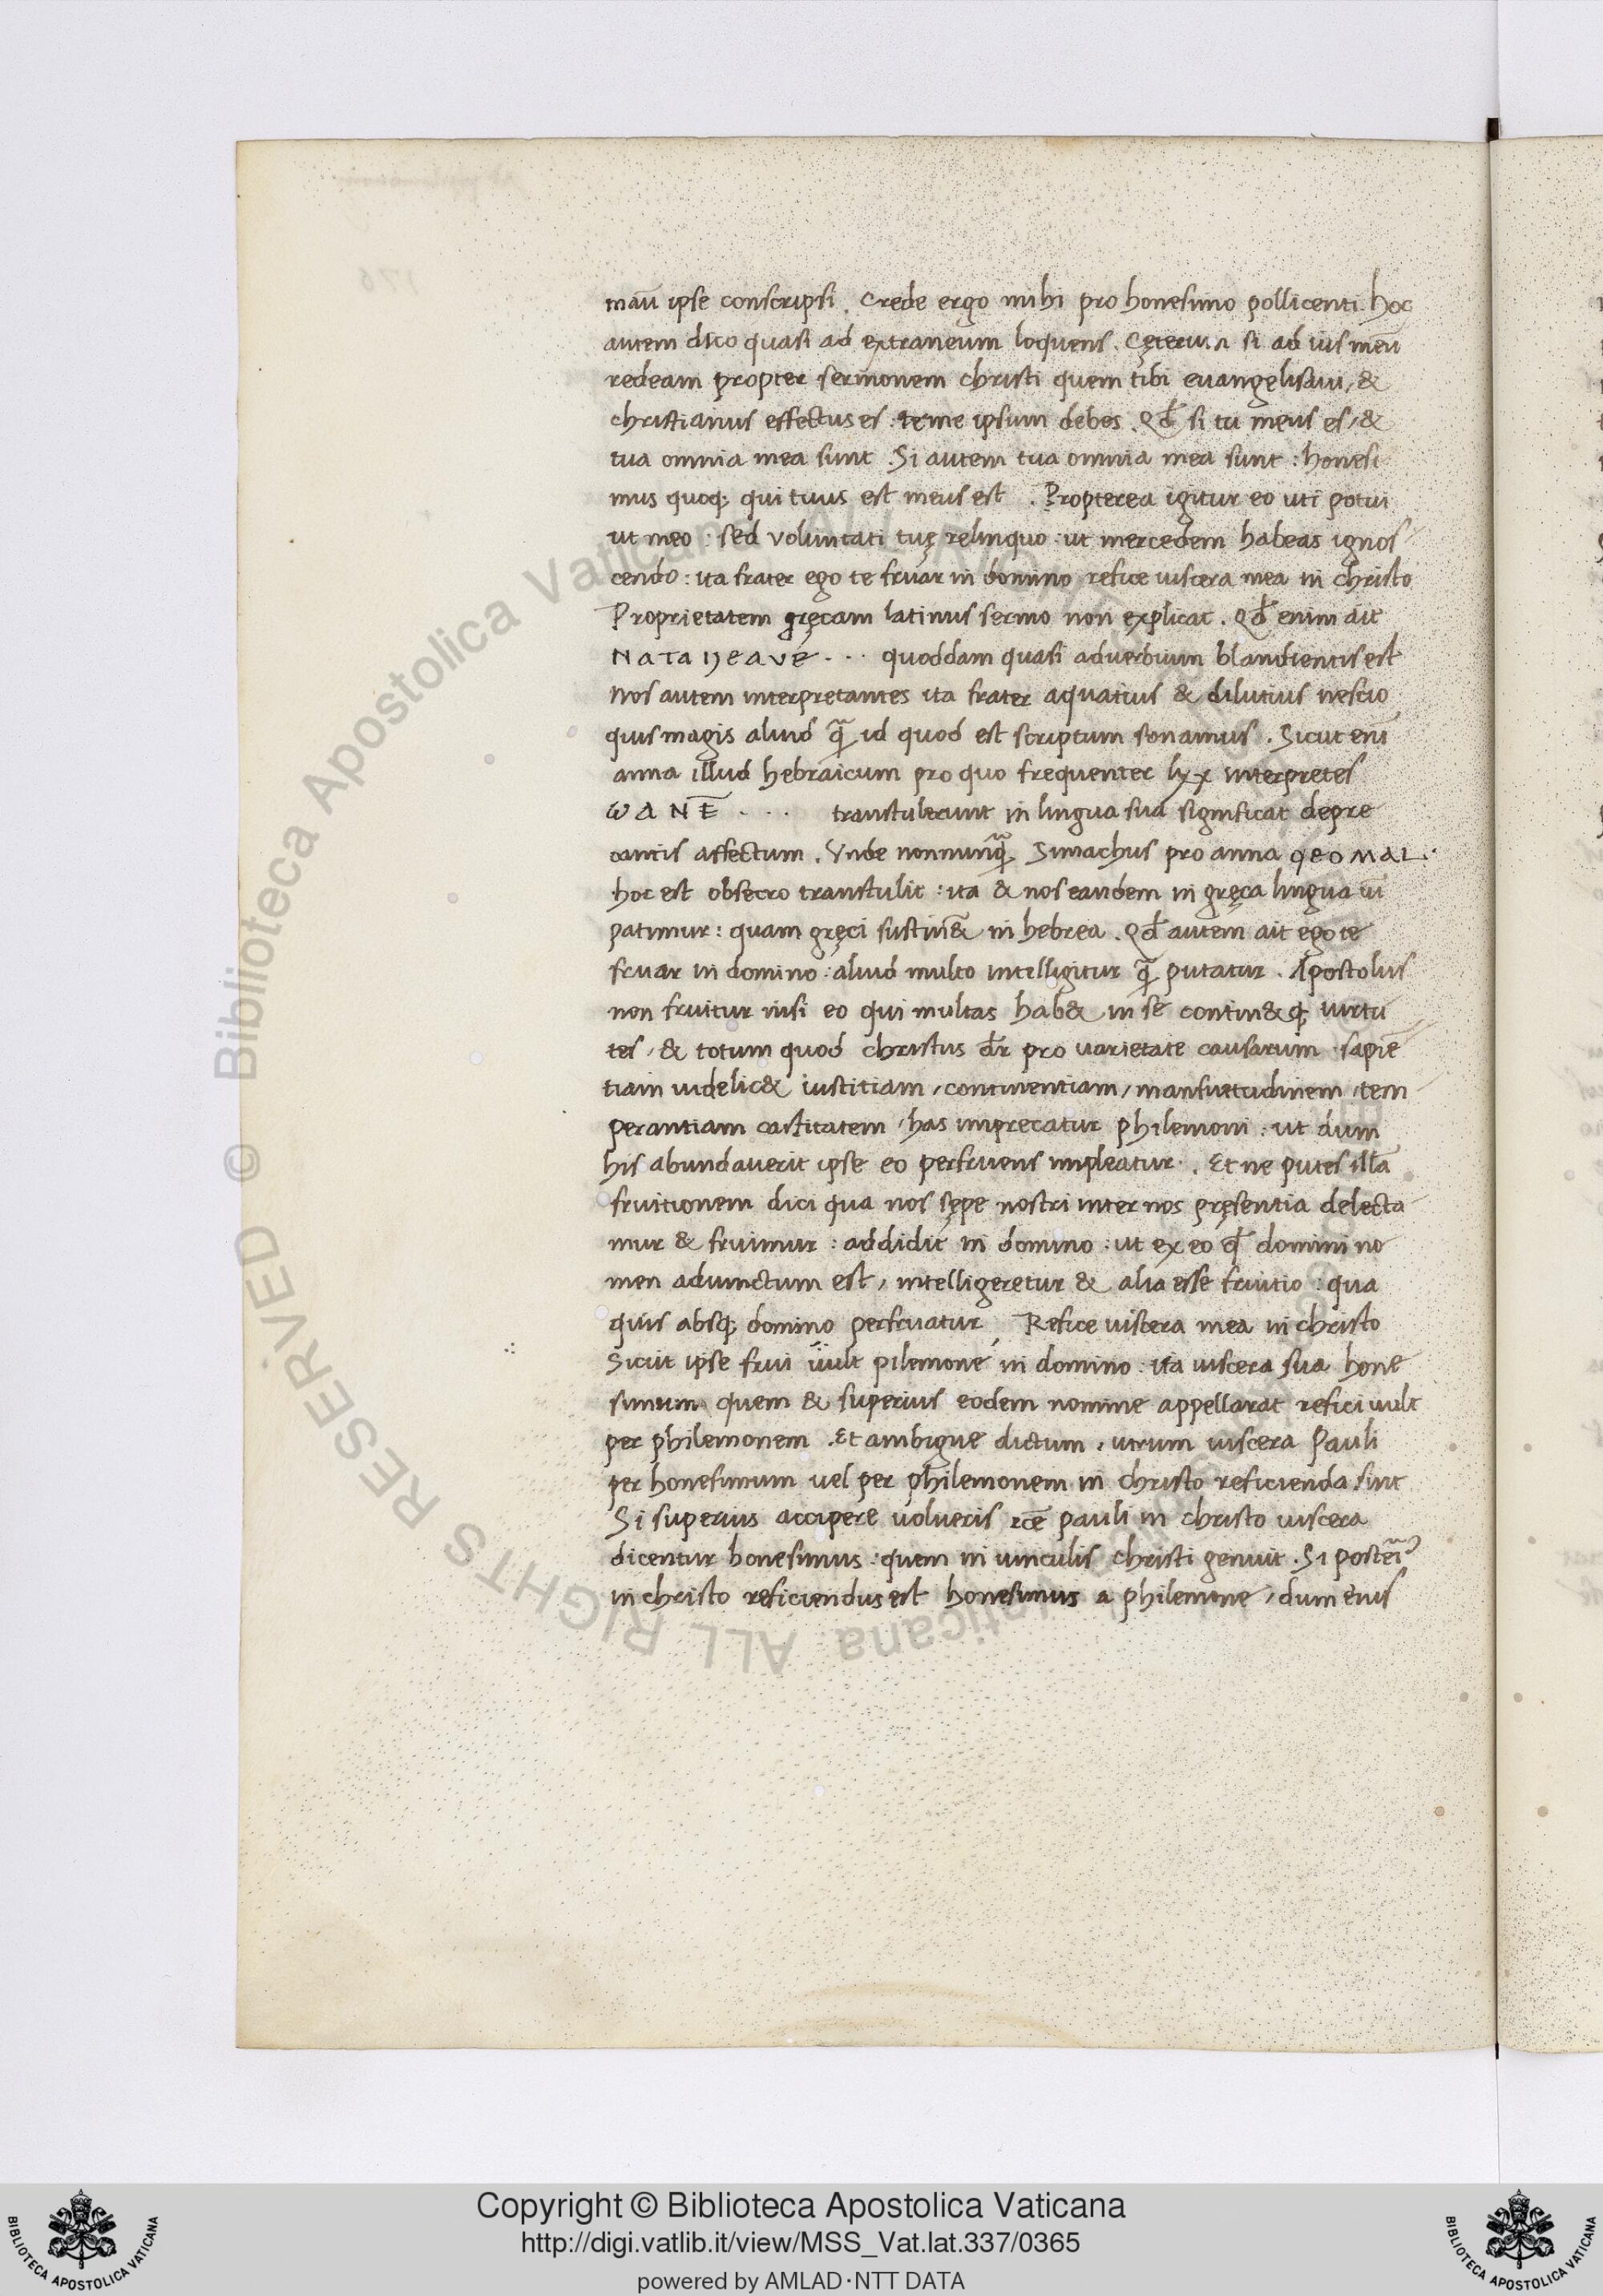 manū ipse conscripsi. Crede ergo mihi pro honesimo pollicenti. hoc
autem dico quasi ad extraneum loquens. Cęterum si ad ius meū
redeam propter sermonem christi quem tibi euangelisaui, &
christianus effectus es: te me ipsum debes. Qd̄ si tu meus es, &
tua omnia mea sunt. Si autem tua omnia mea sunt: honesi
mus quoq; qui tuus est meus est. Propterea igitur eo uti potui
ut meo: sed voluntati tuę relinquo: ut mercedem habeas ignos
cendo: ita frater ego te fruar in domino refice uiscera mea in christo
Proprietatem gręcam latinus sermo non explicat. Qd̄ enim ait
quoddam quasi aduerbium blandientis est
Nos autem interpretantes ita frater aquatius & dilutius nescio
quis magis aliud q̄ id quod est scriptum sonamus. Sicut eni̅
anna illud hebraicum pro quo frequenter lxx interpretes
ω a N Ē . . . transtulerunt in lingua sua significat depre
cantis affectum. Vnde nonnunq̄ Simachus pro anna
hoc est obsecro transtulit: ita & nos eandem in gręca lingua ui̅
patimur: quam gręci sustin& in hebrea. Qd̄ autem ait ego te
fruar in domino: aliud multo intelligitur q̄ putatur. Apostolus
non fruitur nisi eo qui multas hab& in se contin&q; uirtu
tes, & totum quod christus dr̄ pro uarietate causarum. sapiē
tiam uidelic& iustitiam, continentiam, mansuetudinem, tem
perantiam castitatem, has imprecatur philemoni: ut dum
his abundauerit ipse eo perfruens impleatur. Et ne putes illā
fruitionem dici qua nos sępe nostri inter nos pręsentia delecta
mur & fruimur: addidit in domino: ut ex eo qd̄ domini no
men adiunctum est, intelligeretur & alia esse fruitio: qua
quis absq; domino perfruatur, Refice uiscera mea in christo
Sicut ipse frui uult pilemone in domino: ita uiscera sua hone
simum quem & superius eodem nomine appellarat refici uult
per philemonem. Et ambigue dictum, utrum uiscera Pauli
per honesimum uel per philemonem in christo reficienda sint
Si superius accipere uolueris pauli in christo uiscera
dicentur honesimus: quem in uinculis christi genuit. Si
in christo reficiendus est honesimus a philemone, dum eius
© Biblioteca Apostolica Vaticana ALL RIGHTS RESERVED
Copyright © Biblioteca Apostolica Vaticana
http://digi.vatlib.it/view/MSS_Vat.lat.337/0365
powered by AMLAD·NTT DATA
BIBLIOTECA APOSTOLICA VATICANA
BIBLIOTECA APOSTOLICA VATICANA